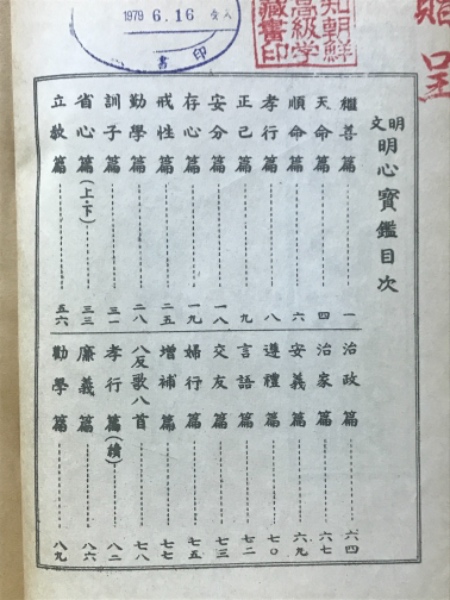 贈呈
知朝鮮
高級学
蔵書印
1979 6.16
書印
明文
明心寶鑑目次
繼善篇 一
天命篇 四
順命篇 六
孝行篇 八
正己篇 九
安分篇 一八
存心篇 一九
戒性篇 二五
勤學篇 二八
訓子篇 三一
省心篇(上·下) 三三
立敎篇 五六
治政篇 六四
治家篇 六七
安義篇 六九
遵禮篇 七〇
言語篇 七二
交友篇 七三
婦行篇 七五
增補篇 七七
八反歌八首 七八
孝行篇(續) 八二
廉義篇 八六
勸學篇 八九